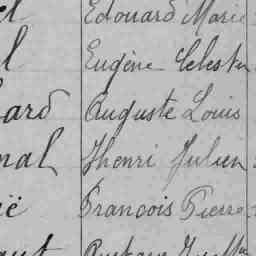 el Edouard Marie
l Eugène Celestin
ard Auguste Louis
nal Jhenri Julien
ië Francois Pierre
aut Gustave